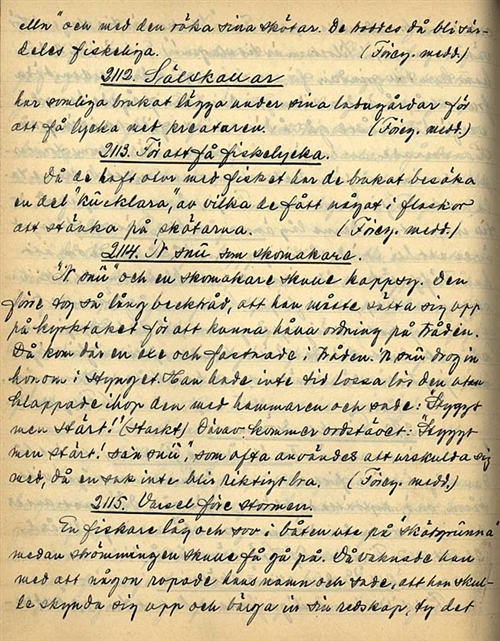 elln" och med den röka sina skötar. De troddes då bli sär-
deles fiskeliga. (Föreg. medd.)
2112. Sälskallar
har somliga brukat lägga under sina ladugårdar för
att få lycka med kreaturen. (Föreg. medd.)
2113. För att få fiskelycka.
Då de haft otur med fisket har de brukat besöka
en del "kücklara," av vilka de fått något i flaskor
att stänka på skötarna. (Föreg. medd.)
2114. 'N snü som skomakara.
'N snü" och en skomakare skulle kappsy. Den
förre tog så lång becktråd, att han måste sätta sig upp
på kyrktaket för att kunna hålla ordning på tråden.
Då kom där en exe och fastnade i tråden. 'N snü drog in
honom i stynget. Han hade inte tid lossa lös den utan
klappade ihop den med hammaren och sade: Styggt
men stärt!" (starkt) Därav kommer ordstävet: Styggt
men stärt! sa'n snü", som ofta användes att urskulda sig
med, då en sak inte blir riktigt bra. (Föreg. medd.)
2115. Varsel före stormen.
En fiskare låg och sov i båten ute på "skötgrünna"
medan strömmingen skulle få gå på. Då vaknade han
med att någon ropade hans namn och sade, att han skul-
le skynda sig upp och bärga in sin redskap, ty det